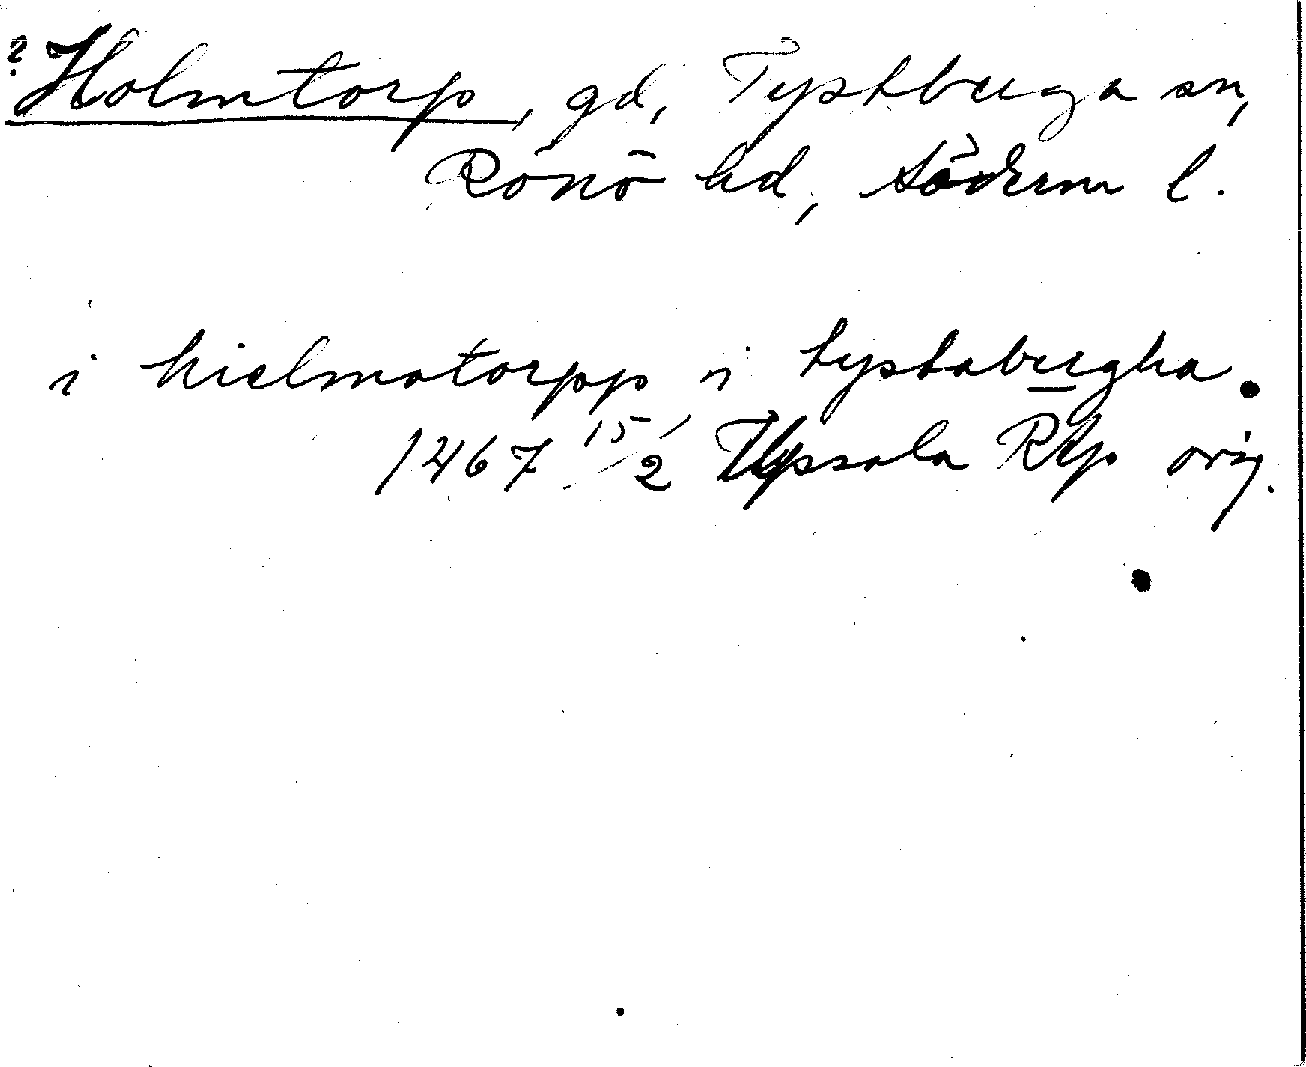 ? Holmtorp, gd, Tystberga sn,
Rönö hd, Söderm l.
i hielmatorpp i tystabergha
1467 15/2 Upsala RAp orig.